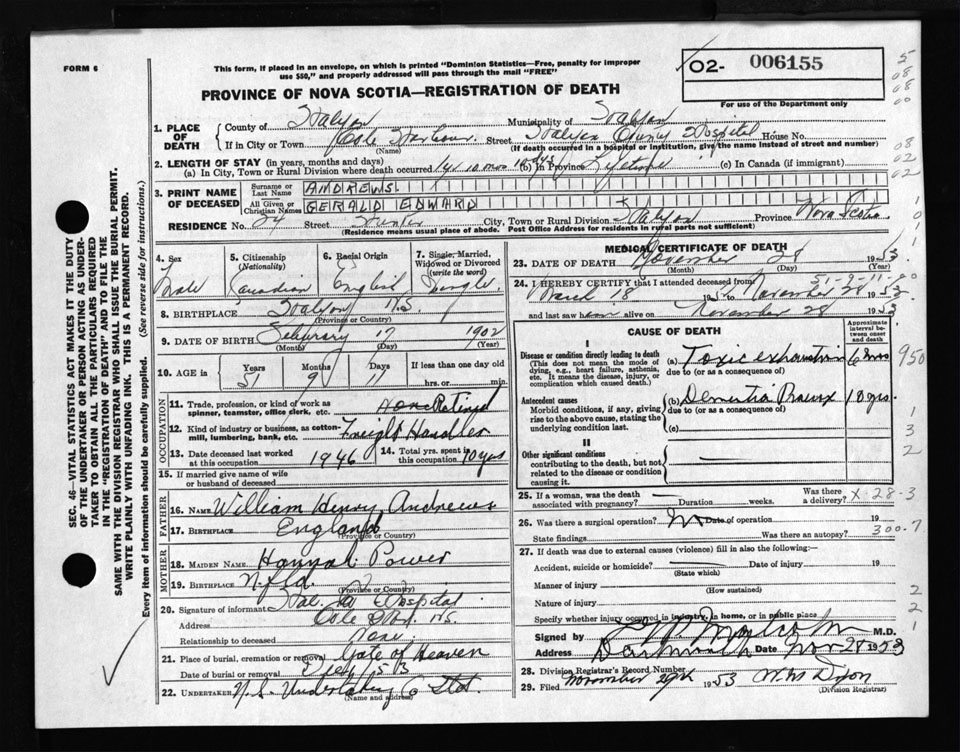 FORM 6
This form, if placed in an envelope, on which is printed "Dominion Statistics—Free, penalty for improper
use $50," and properly addressed will pass through the mail "FREE"
O2- 006155
For use of the Department only
PROVINCE OF NOVA SCOTIA—REGISTRATION OF DEATH
1. PLACE OF DEATH
County of Halifax Municipality of Halifax
If in City or Town Cole Harbour Street Halifax County Hospital House No.
(Name) (If death occurred in a hospital or institution, give the name instead of street and number)
2. LENGTH OF STAY (in years, months and days)
(a) In City, Town or Rural Division where death occurred 1 yr 10 mos (b) In Province Lifetime (c) In Canada (if immigrant)
3. PRINT NAME OF DECEASED
Surname or Last Name ANDREWS
All Given or Christian Names GERALD EDWARD
RESIDENCE No. 24 Street City, Town or Rural Division Halifax Province Nova Scotia
(Residence means usual place of abode. Post Office Address for residents in rural parts not sufficient)
4. Sex Male
5. Citizenship (Nationality) Canadian
6. Racial Origin English
7. Single, Married, Widowed or Divorced (write the word) Single
8. BIRTHPLACE Halifax N.S.
(Province or Country)
9. DATE OF BIRTH February 17 1902
(Month) (Day) (Year)
10. AGE in Years 51 Months 9 Days 11 If less than one day old
hrs. or min.
OCCUPATION
11. Trade, profession, or kind of work as spinner, teamster, office clerk, etc. None Retired
12. Kind of industry or business, as cotton-mill, lumbering, bank, etc. Freight Handler
13. Date deceased last worked at this occupation 1946
14. Total yrs. spent in this occupation 10 yrs
15. If married give name of wife or husband of deceased
FATHER
16. NAME William Henry Andrews
17. BIRTHPLACE England
(Province or Country)
MOTHER
18. MAIDEN NAME Hannah Power
19. BIRTHPLACE Nfld.
(Province or Country)
20. Signature of informant Hal. Co Hospital
Address Cole Hbr. N.S.
Relationship to deceased None
21. Place of burial, cremation or removal Gate of Heaven
Date of burial or removal
22. UNDERTAKER N.S. Undertaking Co
(Name and address)
MEDICAL CERTIFICATE OF DEATH
23. DATE OF DEATH November 28 1953
(Month) (Day) (Year)
51-9-11-00
24. I HEREBY CERTIFY that I attended deceased from
March 18 195 to November 28 1953
and last saw him alive on November 28 1953
CAUSE OF DEATH
Approximate interval between onset and death
I
Disease or condition directly leading to death
(This does not mean the mode of dying, e.g., heart failure, asthenia, etc. It means the disease, injury, or complication which caused death.)
(a) Toxic exhaustion 6 mos
due to (or as a consequence of)
Antecedent causes
Morbid conditions, if any, giving rise to the above cause, stating the underlying condition last.
(b) Dementia Praecox 18 yrs.
due to (or as a consequence of)
(c)
II
Other significant conditions
contributing to the death, but not related to the disease or condition causing it.
25. If a woman, was the death associated with pregnancy? Duration weeks. Was there a delivery? X-28-3
26. Was there a surgical operation? No Date of operation 19
State findings Was there an autopsy? 300.7
27. If death was due to external causes (violence) fill in also the following:—
Accident, suicide or homicide? Date of injury 19
(State which)
Manner of injury
(How sustained)
Nature of injury
Specify whether injury occurred in industry, in home, or in public place
Signed by Malcolm M.D.
Address Dartmouth Date Nov 28 1953
28. Division Registrar's Record Number
29. Filed November 29th 1953 W.M. Dyson
(Division Registrar)
SEC. 46—VITAL STATISTICS ACT MAKES IT THE DUTY
OF THE UNDERTAKER OR PERSON ACTING AS UNDER-
TAKER TO OBTAIN ALL THE PARTICULARS REQUIRED
IN THE "REGISTRATION OF DEATH" AND TO FILE THE
SAME WITH THE DIVISION REGISTRAR WHO SHALL ISSUE THE BURIAL PERMIT.
WRITE PLAINLY WITH UNFADING INK. THIS IS A PERMANENT RECORD.
Every item of information should be carefully supplied. (See reverse side for instructions.)